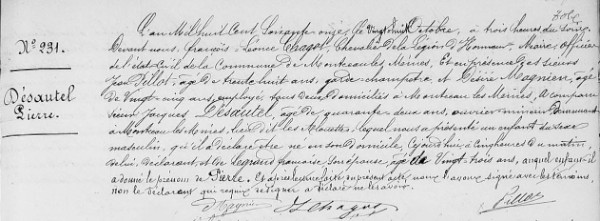 N° 231.
Désautel
Pierre.
L'an Mil huit Cent Soixante onze, le vingt huit Octobre, à trois heures du Soir,
Devant nous, françois Léonce Chagot, Chevalier de la légion d'Honneur, Maire, Officier
de l'état civil de la Commune de Montceau les Mines, Et en présence des sieurs
Jean Pillot, âgé de trente huit ans, garde champêtre et Désiré Magnien, âgé
de Vingt-cinq ans, employé, tous deux domiciliés à Montceau les Mines, a comparu
Sieur Jacques Désautel, âgé de quarante deux ans, ouvrier mineur, demeurant
à Montceau les Mines, lieu dit les Alouettes, lequel nous a présenté un enfant du sexe
masculin, qu'il a déclaré être né en son domicile, cejourd'hui à cinq heures du matin,
de lui, déclarant, et de Legrand françoise, son épouse, âgée de Vingt trois ans, auquel enfant il
a donné le prénom de Pierre. Et après lecture faite du présent acte, nous l'avons signé avec les témoins,
non le déclarant qui requis de signer a déclaré ne le savoir.
D Magnien L Chagot Pillot